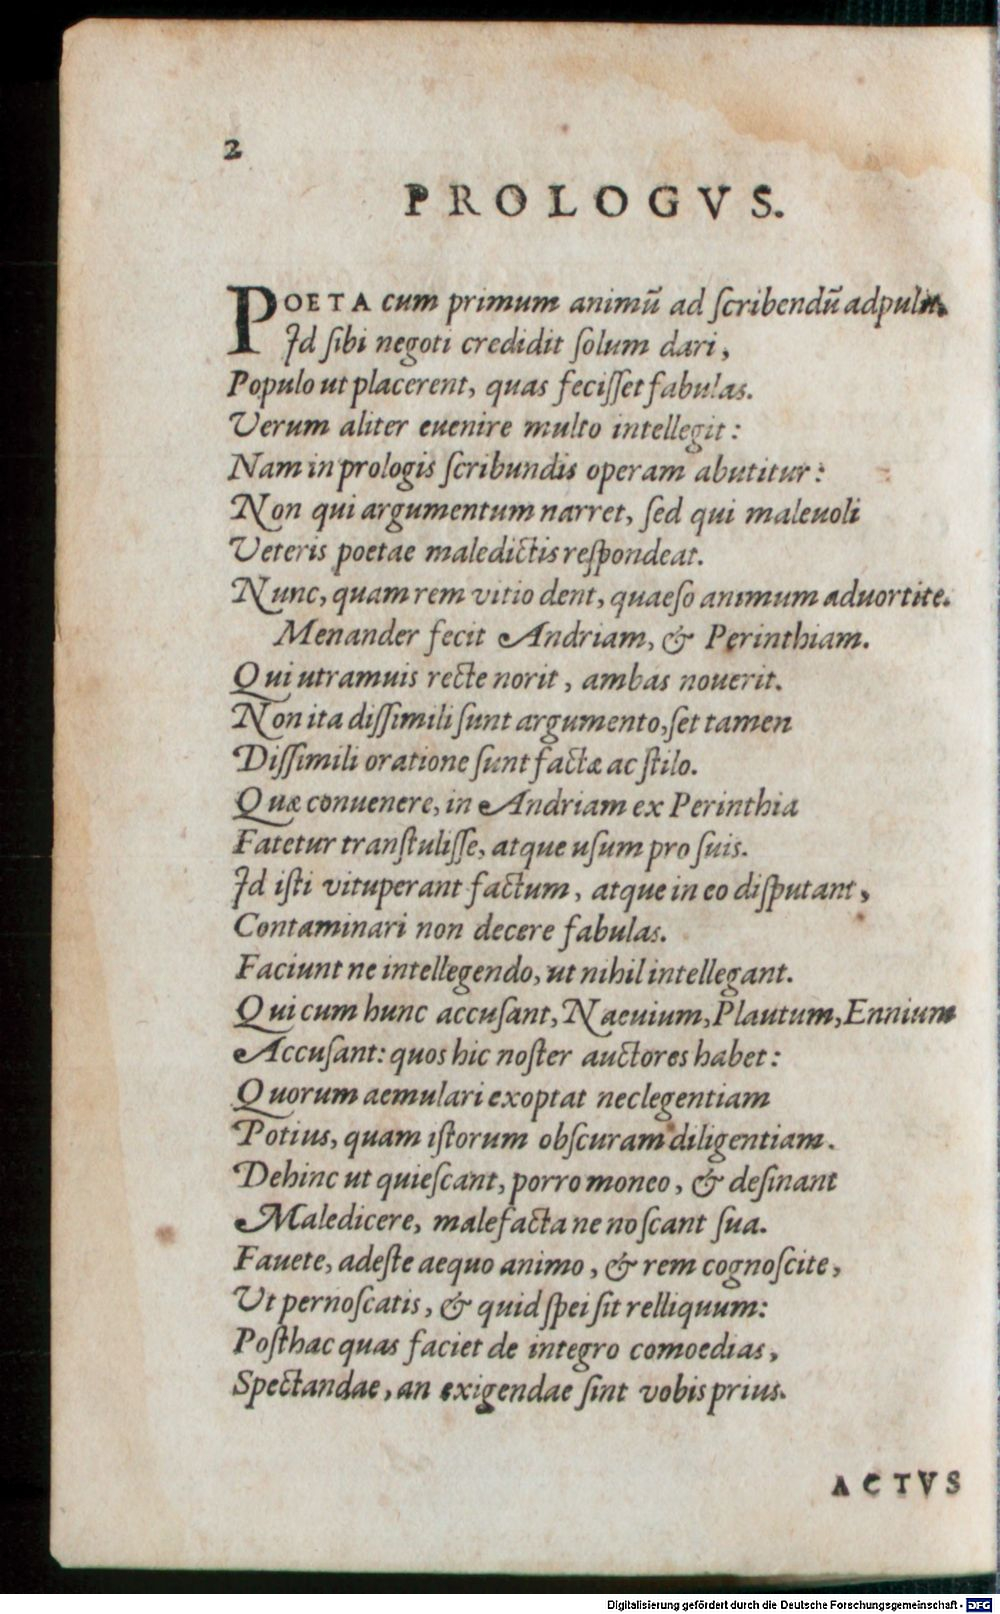 2
PROLOGVS.
POETA cum primum animū ad ſcribendū adpulit.
Id ſibi negoti credidit ſolum dari,
Populo ut placerent, quas feciſſet fabulas.
Verum aliter euenire multo intellegit:
Nam in prologis ſcribundis operam abutitur:
Non qui argumentum narret, ſed qui maleuoli
Veteris poetae maledictis reſpondeat.
Nunc, quam rem vitio dent, quaeſo animum aduortite.
Menander fecit Andriam, & Perinthiam.
Qui utramuis recte norit, ambas nouerit.
Non ita diſſimili ſunt argumento, ſet tamen
Diſſimili oratione ſunt factæ ac ſtilo.
Quæ conuenere, in Andriam ex Perinthia
Fatetur tranſtuliſſe, atque uſum pro ſuis.
Id iſti vituperant factum, atque in eo diſputant,
Contaminari non decere fabulas.
Faciunt ne intellegendo, ut nihil intellegant.
Qui cum hunc accuſant, Naeuium, Plautum, Ennium
Accuſant: quos hic noſter auctores habet:
Quorum aemulari exoptat neclegentiam
Potius, quam iſtorum obſcuram diligentiam.
Dehinc ut quieſcant, porro moneo, & deſinant
Maledicere, malefacta ne noſcant ſua.
Fauete, adeſte aequo animo, & rem cognoſcite,
Ut pernoſcatis, & quid ſpei ſit relliquum:
Poſthac quas faciet de integro comoedias,
Spectandae, an exigendae ſint vobis prius.
ACTVS
Digitalisierung gefördert durch die Deutsche Forschungsgemeinschaft - DFG